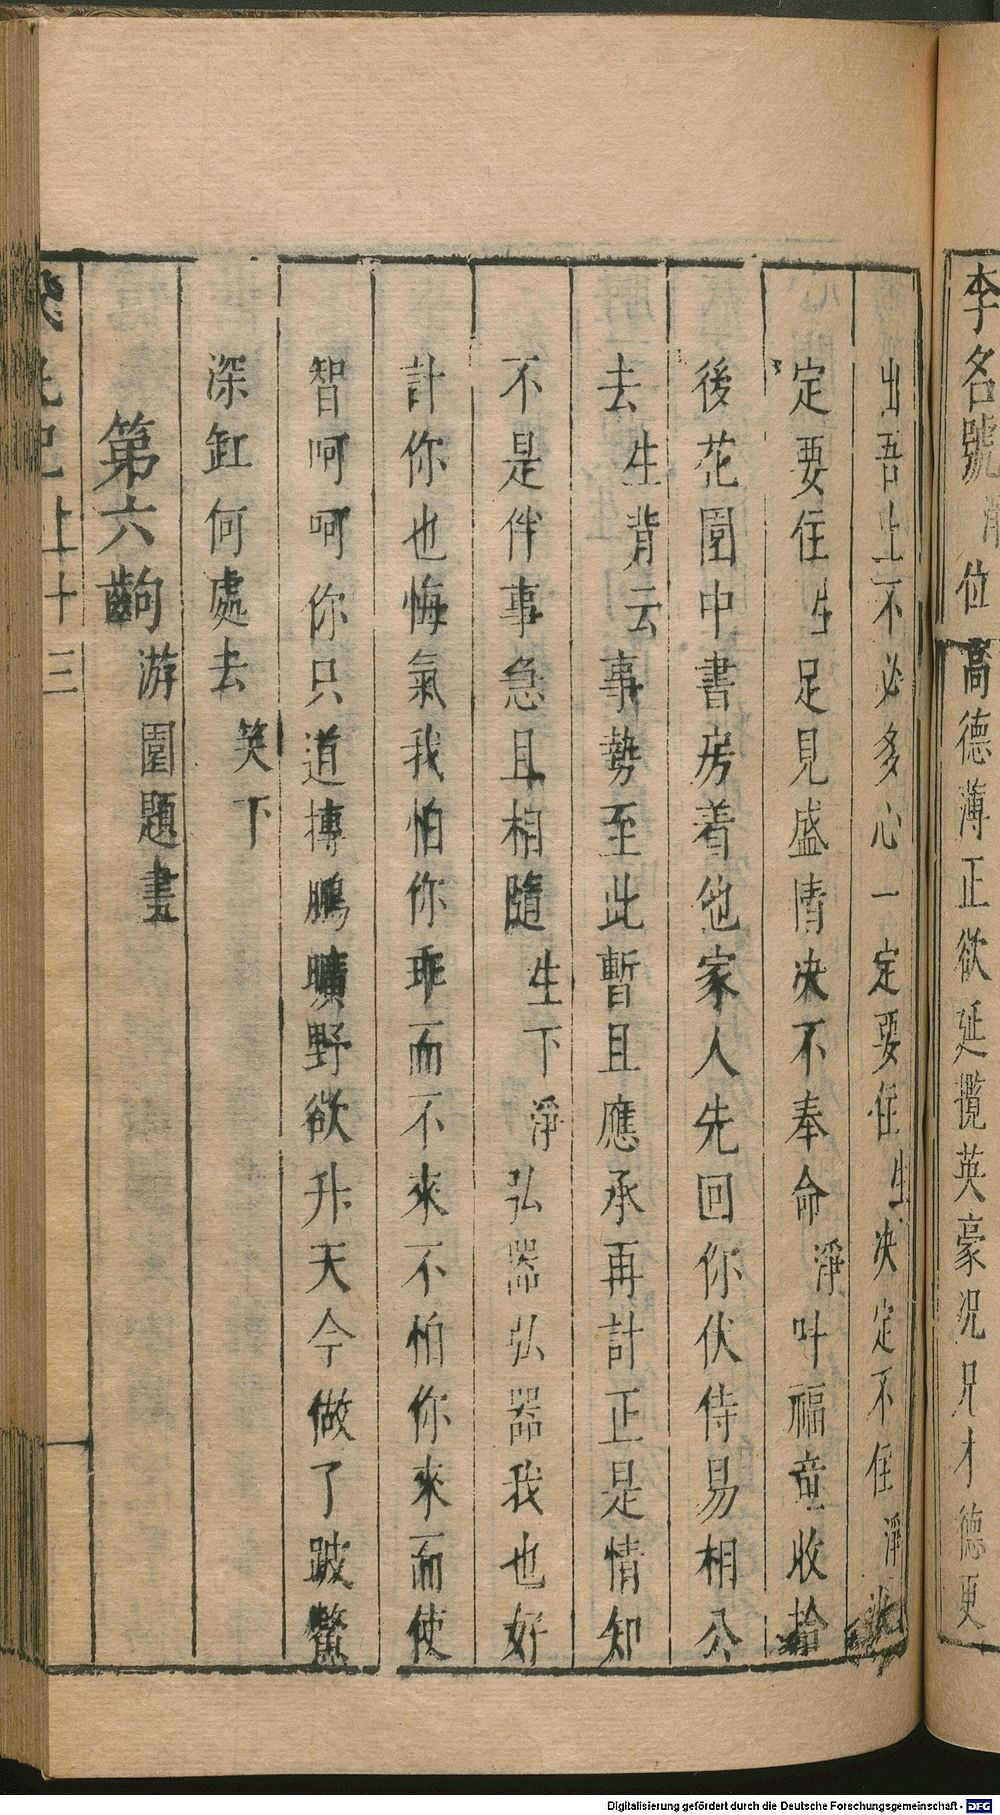 李名號淨位高德薄正欲延攬英豪况兄才德更
出吾上不必多心一定要住生决定不住淨
定要住生足見盛情决不奉命淨叶福童收拾
後花園中書房着他家人先回你伏侍易相公
去生背云事勢至此暫且應承再計正是情知
不是伴事急且相隨生下淨弘器弘器我也好
計你也悔氣我怕你乖而不來不怕你來而使
智呵呵你只道摶鵬曠野欲升天今做了跛鱉
深缸何處去笑下
第六齣游園題畫
上十三
Digitalisierung gefördert durch die Deutsche Forschungsgemeinschaft - DFG